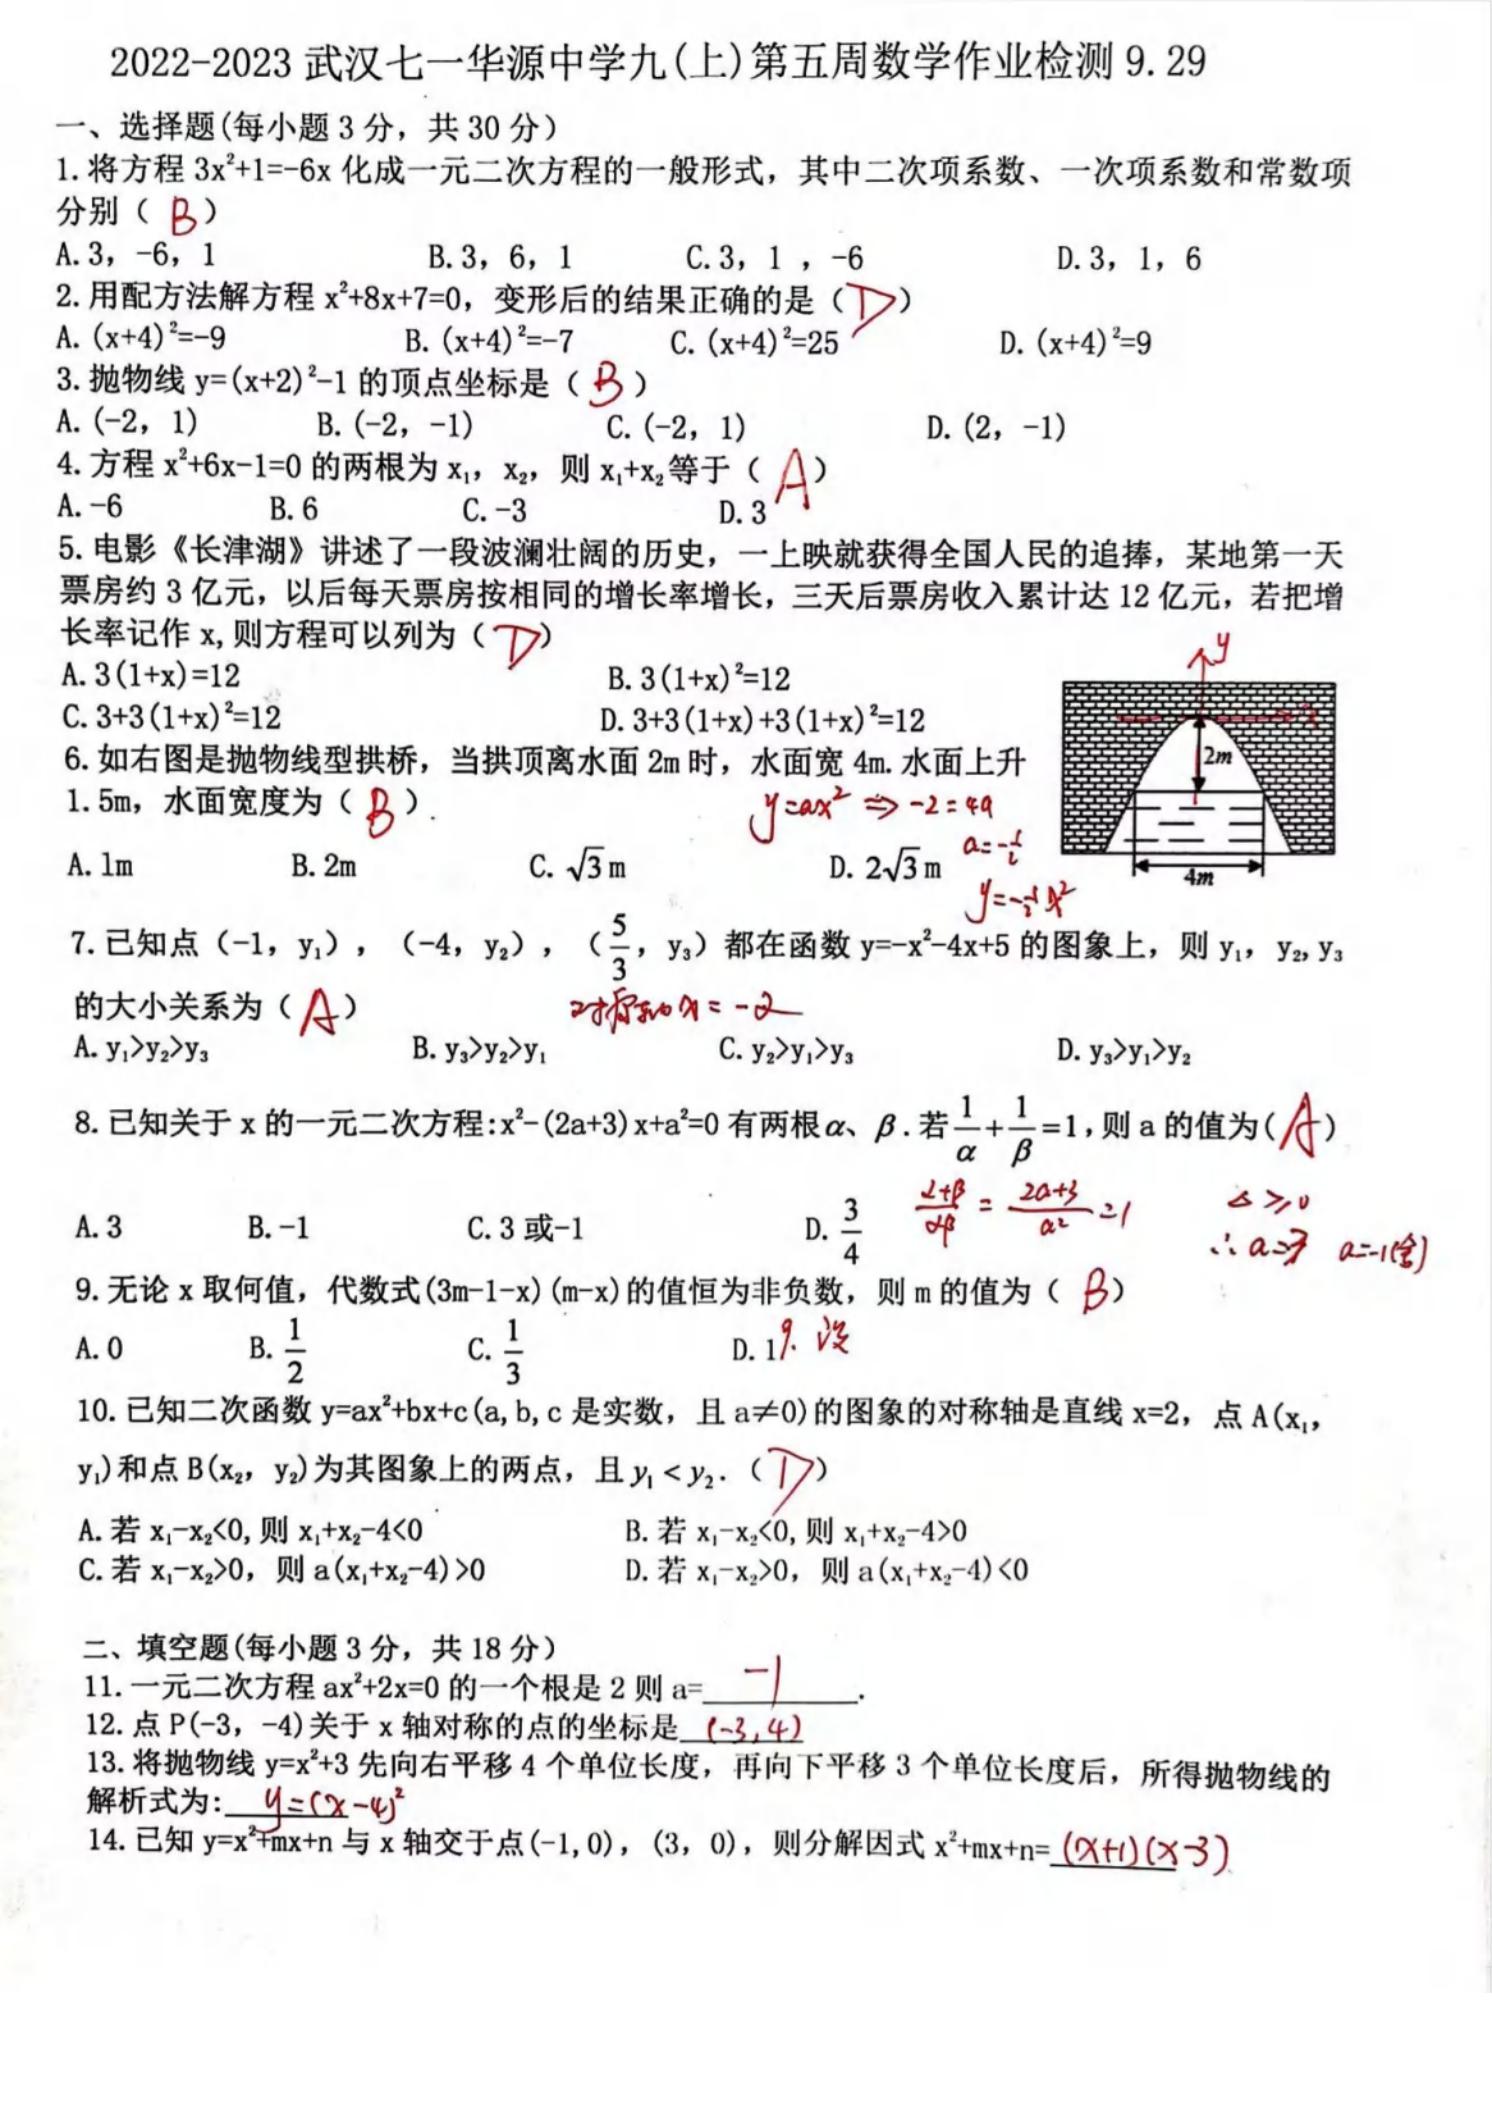 2022-2023武汉七一华源中学九(上)第五周数学作业检测9.29
一、选择题(每小题3分，共30分)
1.将方程3x²+1=-6x化成一元二次方程的一般形式，其中二次项系数、一次项系数和常数项
分别（ B ）
A.3，-6，1 B.3，6，1 C.3，1，-6 D.3，1，6
2.用配方法解方程x²+8x+7=0，变形后的结果正确的是（ D ）
A.(x+4)²=-9 B.(x+4)²=-7 C.(x+4)²=25 D.(x+4)²=9
3.抛物线y=(x+2)²-1的顶点坐标是（ B ）
A.(-2，1) B.(-2，-1) C.(-2，1) D.(2，-1)
4.方程x²+6x-1=0的两根为x₁，x₂，则x₁+x₂等于（ A ）
A.-6 B.6 C.-3 D.3
5.电影《长津湖》讲述了一段波澜壮阔的历史，一上映就获得全国人民的追捧，某地第一天
票房约3亿元，以后每天票房按相同的增长率增长，三天后票房收入累计达12亿元，若把增
长率记作x,则方程可以列为（ D ）
A.3(1+x)=12 B.3(1+x)²=12
C.3+3(1+x)²=12 D.3+3(1+x)+3(1+x)²=12
y
x
2m
4m
6.如右图是抛物线型拱桥，当拱顶离水面2m时，水面宽4m.水面上升
1.5m，水面宽度为（ B ）.
y=ax² ⇒ -2=4a
a=-1/2
y=-1/2x²
A.1m B.2m C.√3m D.2√3m
7.已知点（-1，y₁），（-4，y₂），（5/3，y₃）都在函数y=-x²-4x+5的图象上，则y₁，y₂,y₃
的大小关系为（ A ） 对称轴x=-2
A.y₁>y₂>y₃ B.y₃>y₂>y₁ C.y₂>y₁>y₃ D.y₃>y₁>y₂
8.已知关于x的一元二次方程:x²-(2a+3)x+a²=0有两根α、β.若1/α+1/β=1,则a的值为( A )
A.3 B.-1 C.3或-1 D.3/4
(α+β)/αβ = (2a+3)/a² =1 Δ≥0
∴a=3 a=-1(舍)
9.无论x取何值，代数式(3m-1-x)(m-x)的值恒为非负数，则m的值为（ B ）
A.0 B.1/2 C.1/3 D.1 9.设
10.已知二次函数y=ax²+bx+c(a,b,c是实数，且a≠0)的图象的对称轴是直线x=2，点A(x₁，
y₁)和点B(x₂，y₂)为其图象上的两点，且y₁<y₂.（ D ）
A.若x₁-x₂<0,则x₁+x₂-4<0 B.若x₁-x₂<0,则x₁+x₂-4>0
C.若x₁-x₂>0，则a(x₁+x₂-4)>0 D.若x₁-x₂>0，则a(x₁+x₂-4)<0
二、填空题(每小题3分，共18分)
11.一元二次方程ax²+2x=0的一个根是2则a= -1 .
12.点P(-3，-4)关于x轴对称的点的坐标是 (-3,4)
13.将抛物线y=x²+3先向右平移4个单位长度，再向下平移3个单位长度后，所得抛物线的
解析式为: y=(x-4)²
14.已知y=x²+mx+n与x轴交于点(-1,0)，(3，0)，则分解因式x²+mx+n= (x+1)(x-3)